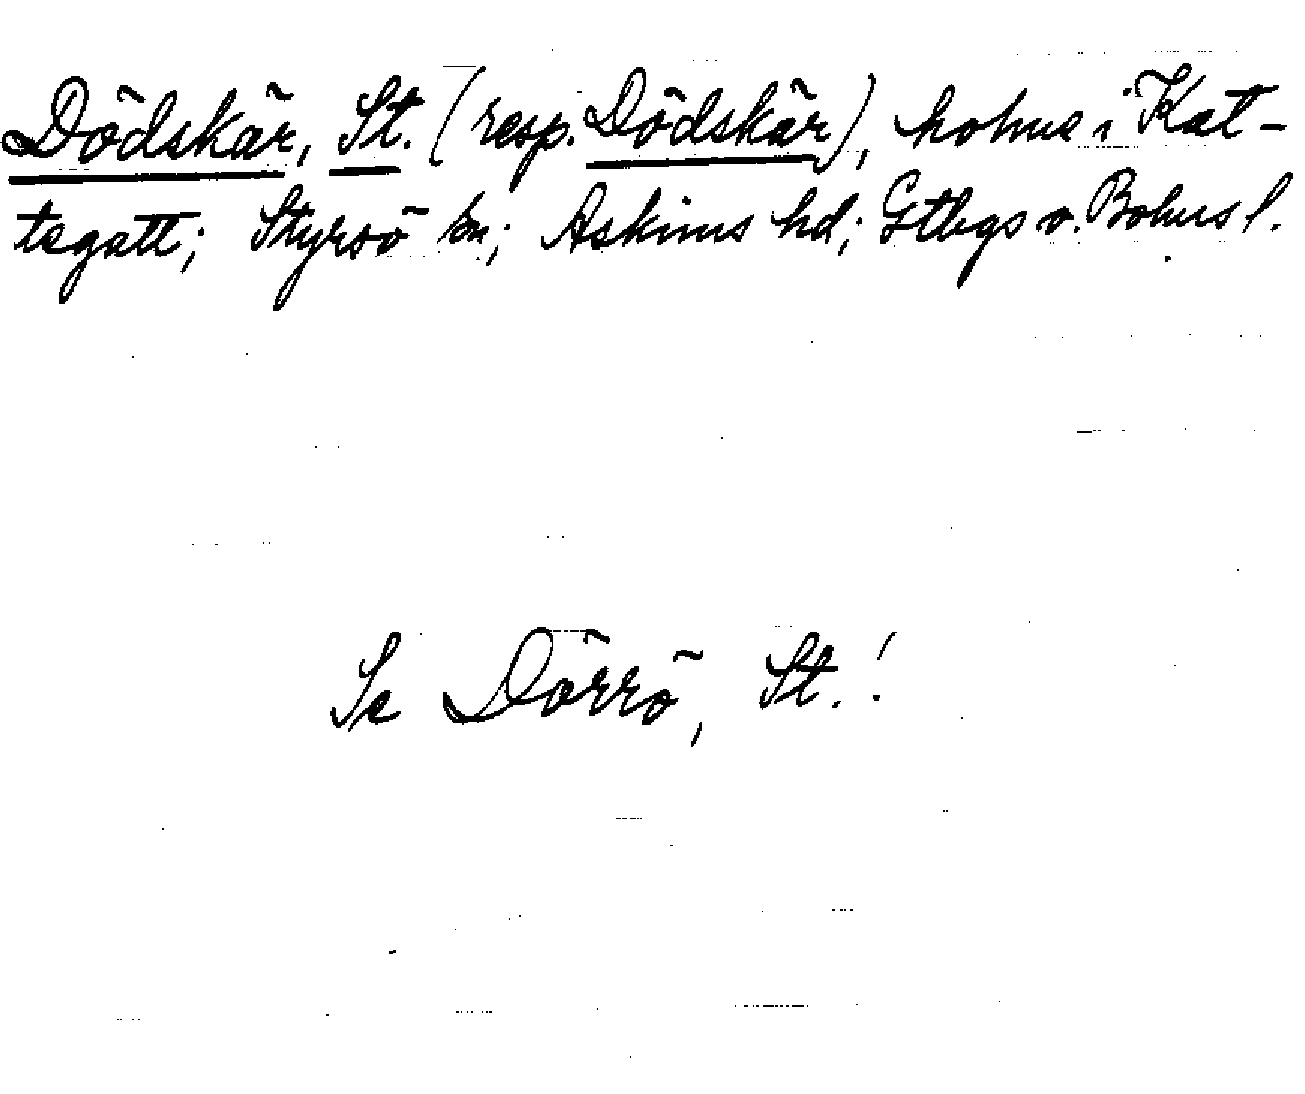 Dödskär, St. (resp. Dödskär), holme i Kat-
tegatt; Styrsö sn; Askims hd; Gtbgs o. Bohus l.
Se Dörrö, St.!